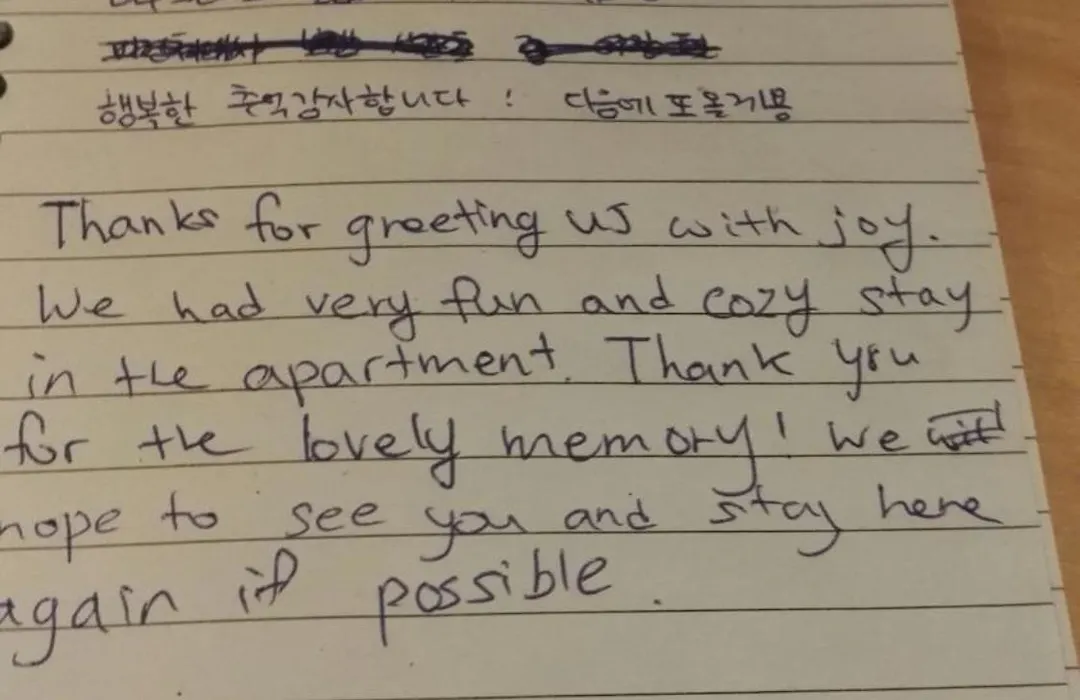 행복한 추억감사합니다 ! 다음에 또올게용
Thanks for greeting us with joy.
We had very fun and cozy stay
in the apartment. Thank you
for the lovely memory! We
hope to see you and stay here
again if possible.